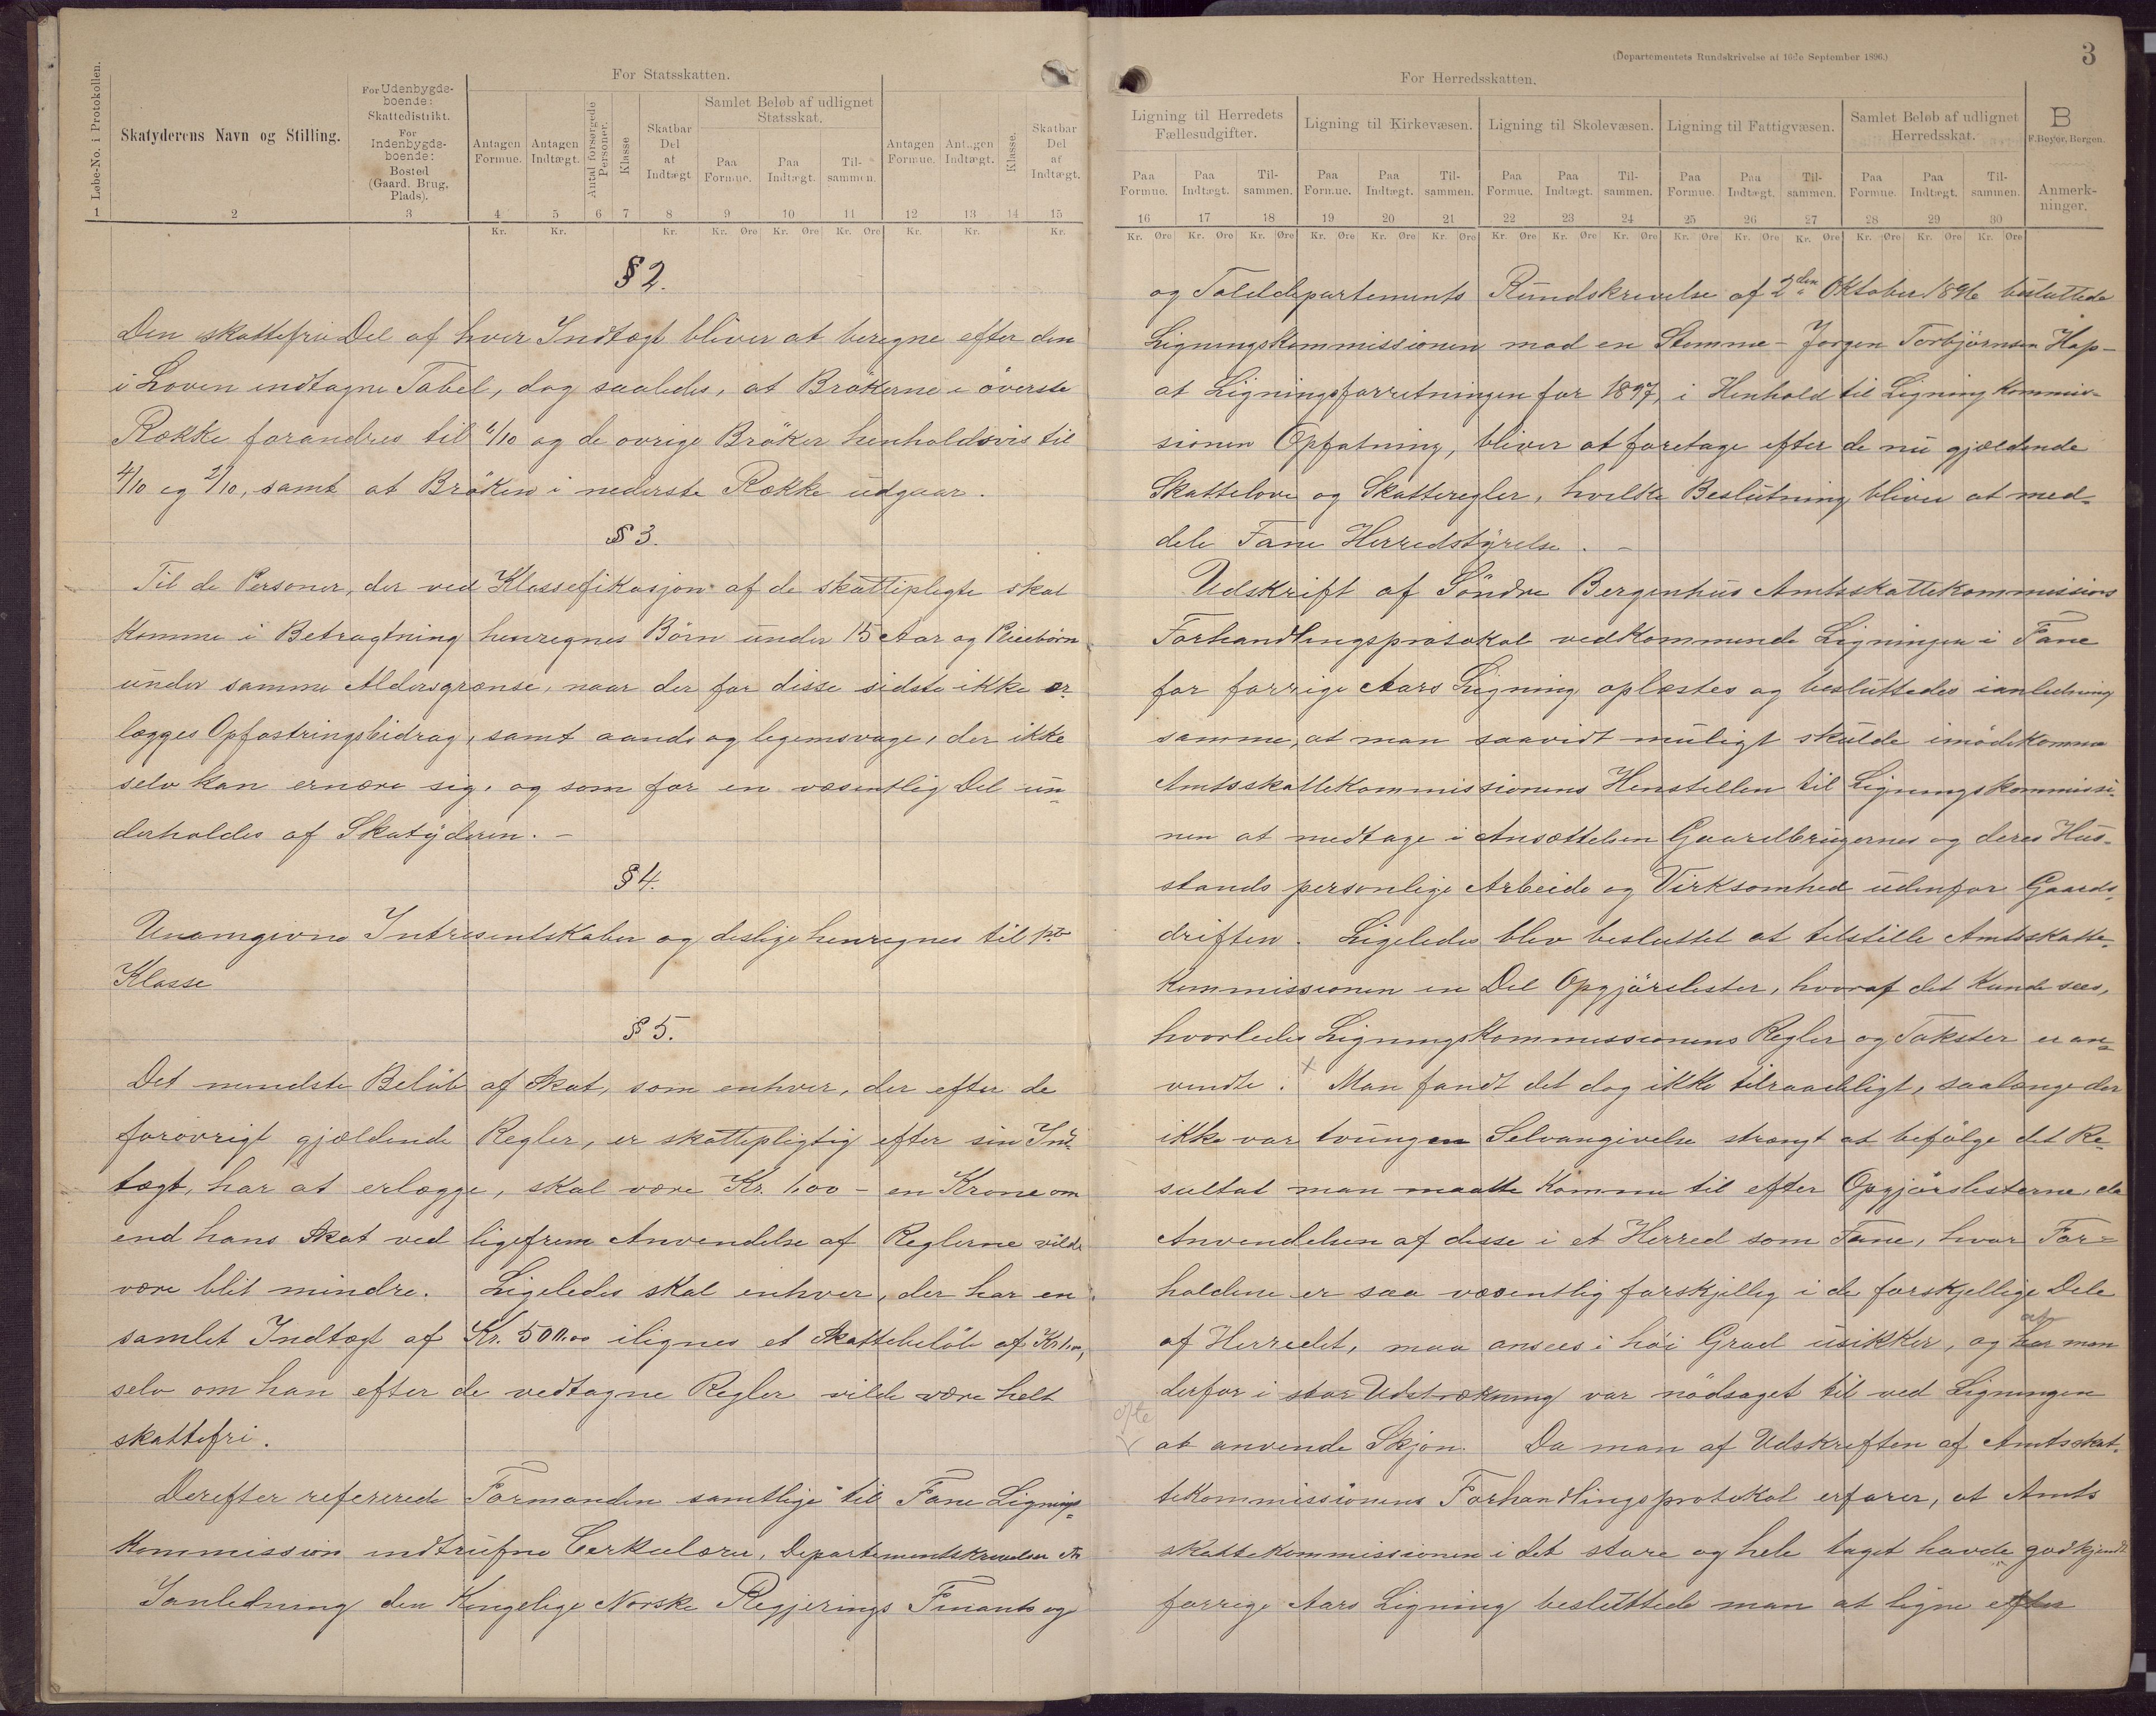 For Statsskatten.
Løbe-No. i Protokollen.
Skatyderens Navn og Stilling.
For Udenbygdsboende: Skattedistrikt.
For Indenbygdsboende: Bosted (Gaard. Brug, Plads).
Antagen Formue.
Antagen Indtægt.
Antal forsørgede Personer.
Klasse
Skatbar Del af Indtægt
Samlet Beløb af udlignet Statsskat.
Paa Formue.
Paa Indtægt.
Tilsammen.
Antagen Formue.
Antagen Indtægt.
Klasse.
Skatbar Del af Indtægt.
1 2 3 4 5 6 7 8 9 10 11 12 13 14 15
Kr. Kr. Kr. Kr. Øre Kr. Øre Kr. Øre Kr. Kr. Kr.
§ 2.
Den skattefri Del af hver Indtægt bliver at beregne efter den
i Loven indtagne Tabel, dog saaledes, at Brøkerne i øverste
Række forandres til 6/10 og de øvrige Brøker henholdsvis til
4/10 og 2/10, samt at Brøken i nederste Række udgaar.
§ 3.
Til de Personer, der ved Klassefikasjon af de skattepligte skal
komme i Betragtning henregnes Børn under 15 Aar og Pleiebørn
under samme Aldersgrænse, naar der for disse sidste ikke er-
lægges Opfostringsbidrag, samt aands og legemsvage, der ikke
selv kan ernære sig, og som for en væsentlig Del un-
derholdes af Skatyderen. -
§ 4.
Unavngivne Intresentskaber og deslige henregnes til 1ste
Klasse
§ 5.
Det mindste Beløb af Skat, som enhver, der efter de
forøvrigt gjældende Regler, er skattepligtig efter sin Ind-
tægt, har at erlægge, skal være Kr. 1.00 - en Krone om
end hans Skat ved ligefrem Anvendelse af Reglerne vilde
være blit mindre. Ligeledes skal enhver, der har en
samlet Indtægt af Kr. 500.00 ilignes et Skattebeløb af Kr 1.00,
selv om han efter de vedtagne Regler vilde være helt
skattefri.
Derefter refererede Formanden samtlige til Fane Lignings-
kommission indtrufne Cerkulærer, Departementskrivelser etc
Ianledning den Kongelige Norske Regjerings Finants og
(Departementets Rundskrivelse af 16de September 1896.)
3
For Herredsskatten.
Ligning til Herredets Fællesudgifter.
Ligning til Kirkevæsen.
Ligning til Skolevæsen.
Ligning til Fattigvæsen.
Samlet Beløb af udlignet Herredsskat.
B
F. Beyer, Bergen.
Anmerkninger.
Paa Formue. Paa Indtægt. Tilsammen. Paa Formue. Paa Indtægt. Tilsammen. Paa Formue. Paa Indtægt. Tilsammen. Paa Formue. Paa Indtægt. Tilsammen. Paa Formue. Paa Indtægt. Tilsammen.
16 17 18 19 20 21 22 23 24 25 26 27 28 29 30
Kr. Øre Kr. Øre Kr. Øre Kr. Øre Kr. Øre Kr. Øre Kr. Øre Kr. Øre Kr. Øre Kr. Øre Kr. Øre Kr. Øre Kr. Øre Kr. Øre Kr. Øre
og Tolddepartements Rundskrivelse af 2den Oktober 1896 besluttede
Ligningskommissionen mod en Stemme - Jørgen Torbjørnsen Hop -
at Ligningsforretningen for 1897, i Henhold til Ligningkommis-
sionen Opfatning, bliver at foretage efter de nu gjældende
Skattelove og Skatteregler, hvilke Beslutning bliver at med-
dele Fane Herredstyrelse. -
Udskrift af Søndre Bergenhus Amtsskattekommissions
Forhandlingsprotokol vedkommende Ligningen i Fane
for forrige Aars Ligning oplæstes og besluttedes ianledning
samme, at man saavidt muligt skulde imødekomme
Amtsskattekommissionens Henstillen til Ligningskommissi-
nen at medtage i Ansættelsen Gaardbrugernes og deres Hus-
stands personlige Arbeide og Virksomhed udenfor Gaards-
driften. Ligeledes blev besluttet at tilstille Amtsskatte-
kommissionen en Del Opgjørslister, hvoraf det kunde sees,
hvorledes Ligningskommissionens Regler og Takster er an-
vendte. x Man fandt det dog ikke tilraadeligt, saalænge der
ikke var tvungen Selvangivelse strængt at befølge det Re-
sultat man maatte komme til efter Opgjørslisterne, da
Anvendelsen af disse i et Herred som Fane, hvor For-
holdene er saa væsentlig forskjellig i de forskjellige Dele
af Herredet, maa ansees i høi Grad usikker, og har man
derfor i stor Udstrækning var nødsaget til ved Ligningen
ofte
at anvende Skjøn. Da man af Udskriften af Amtsskat-
tekommissionens Forhandlingsprotokol erfarer, at Amts
skattekommissionen i det store og hele taget havde godkjendt
forrige Aars Ligning besluttede man at ligne efter